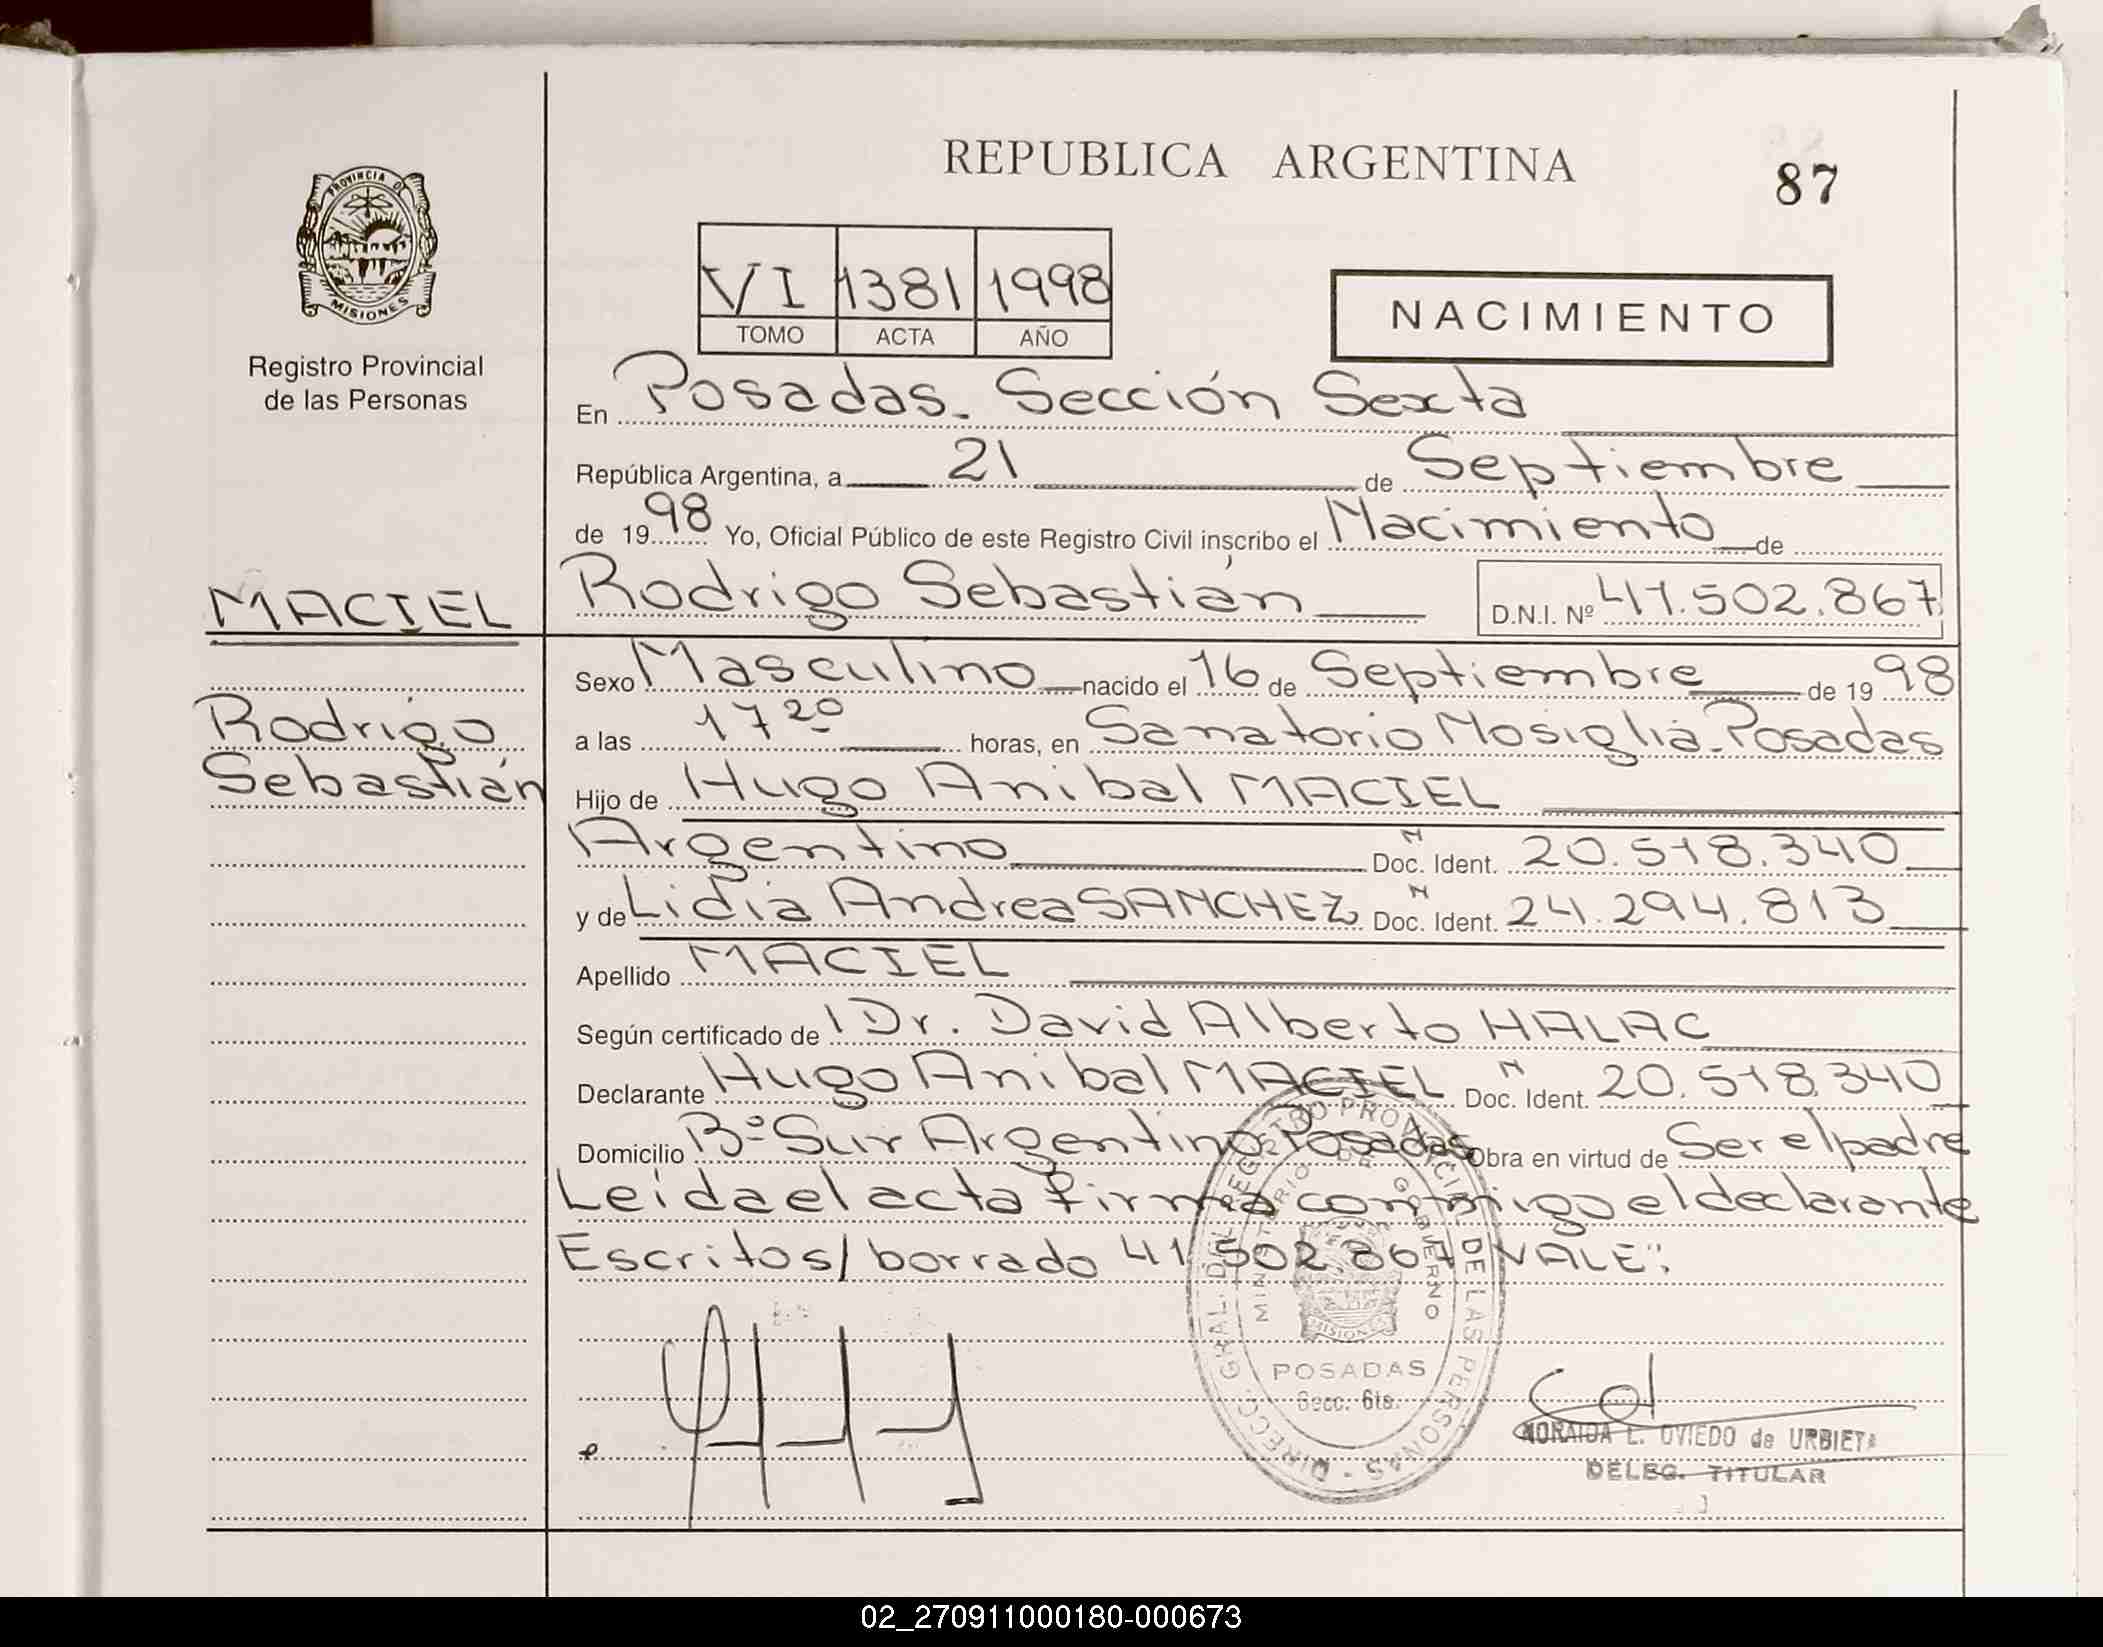 REPUBLICA ARGENTINA
87
PROVINCIA DE
MISIONES
Registro Provincial
de las Personas
VI 1381 1998
TOMO ACTA AÑO
NACIMIENTO
En Posadas. Sección Sexta
República Argentina, a 21 de Septiembre
de 1998 Yo, Oficial Público de este Registro Civil inscribo el Nacimiento de
MACIEL
Rodrigo Sebastián D.N.I. Nº 41.502.867
Sexo Masculino nacido el 16 de Septiembre de 1998
Rodrigo
Sebastián
a las 17 20 horas, en Sanatorio Nosiglia-Posadas
Hijo de Hugo Anibal MACIEL
Argentino N Doc. Ident. 20.518.340
y de Lidia Andrea SANCHEZ N Doc. Ident. 24.294.813
Apellido MACIEL
Según certificado de Dr. David Alberto HALAC
Declarante Hugo Anibal MACIEL N Doc. Ident. 20.518.340
Domicilio Bº Sur Argentino-Posadas Obra en virtud de Ser el padre
Leida el acta firma conmigo el declarante
Escrito s/ borrado 41 502 867 VALE":
DIRECC. GRAL. DEL REGISTRO PROVINCIAL DE LAS PERSONAS
MINISTERIO DE GOBIERNO
MISIONES
POSADAS
Secc. 6ta.
NORAIDA L. OVIEDO de URBIETA
DELEG. TITULAR
02_270911000180-000673